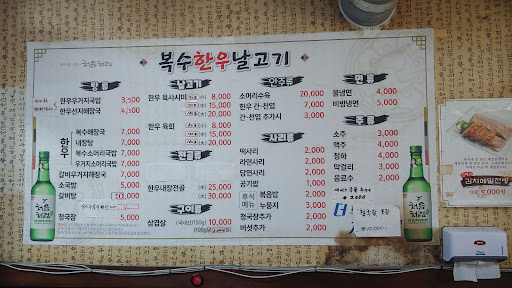 처음처럼
복수한우날고기
탕류
한우우거지국밥 3,500
한우선지해장국 4,500
한우
복수해장국 7,000
내장탕 7,000
복수소머리국밥 7,000
우거지소머리국밥 7,000
갈비우거지해장국 7,000
소국밥 5,000
갈비탕 10,000
7,000
청국장 5,000
날고기
한우 육사시미 (小) 8,000
(中) 15,000
(大) 20,000
한우 육회 (小)
(中) 15,000
(大) 20,000
전골류
한우내장전골 (中) 25,000
(大) 30,000
구이류
삼겹살 (국내산/150g) 10,000
안주류
소머리수육 20,000
한우 간·천엽 7,000
간·천엽 추가시 3,000
사리류
떡사리 2,000
라면사리 2,000
당면사리 2,000
공기밥 1,000
후식메뉴
볶음밥 2,000
누룽지 3,000
청국장추가 2,000
버섯추가 2,000
면류
물냉면 4,000
비빔냉면 5,000
주류
소주 3,000
맥주 4,000
청하 4,000
막걸리 3,000
음료수 2,000
처음처럼
처음처럼
김치메밀전병